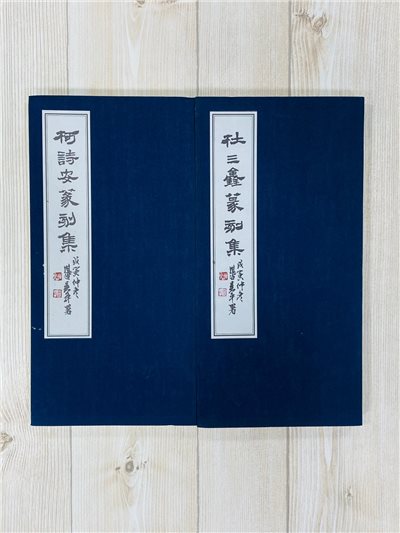 杜三鑫篆刻集
戊寅仲冬
柯詩安篆刻集
戊寅仲冬